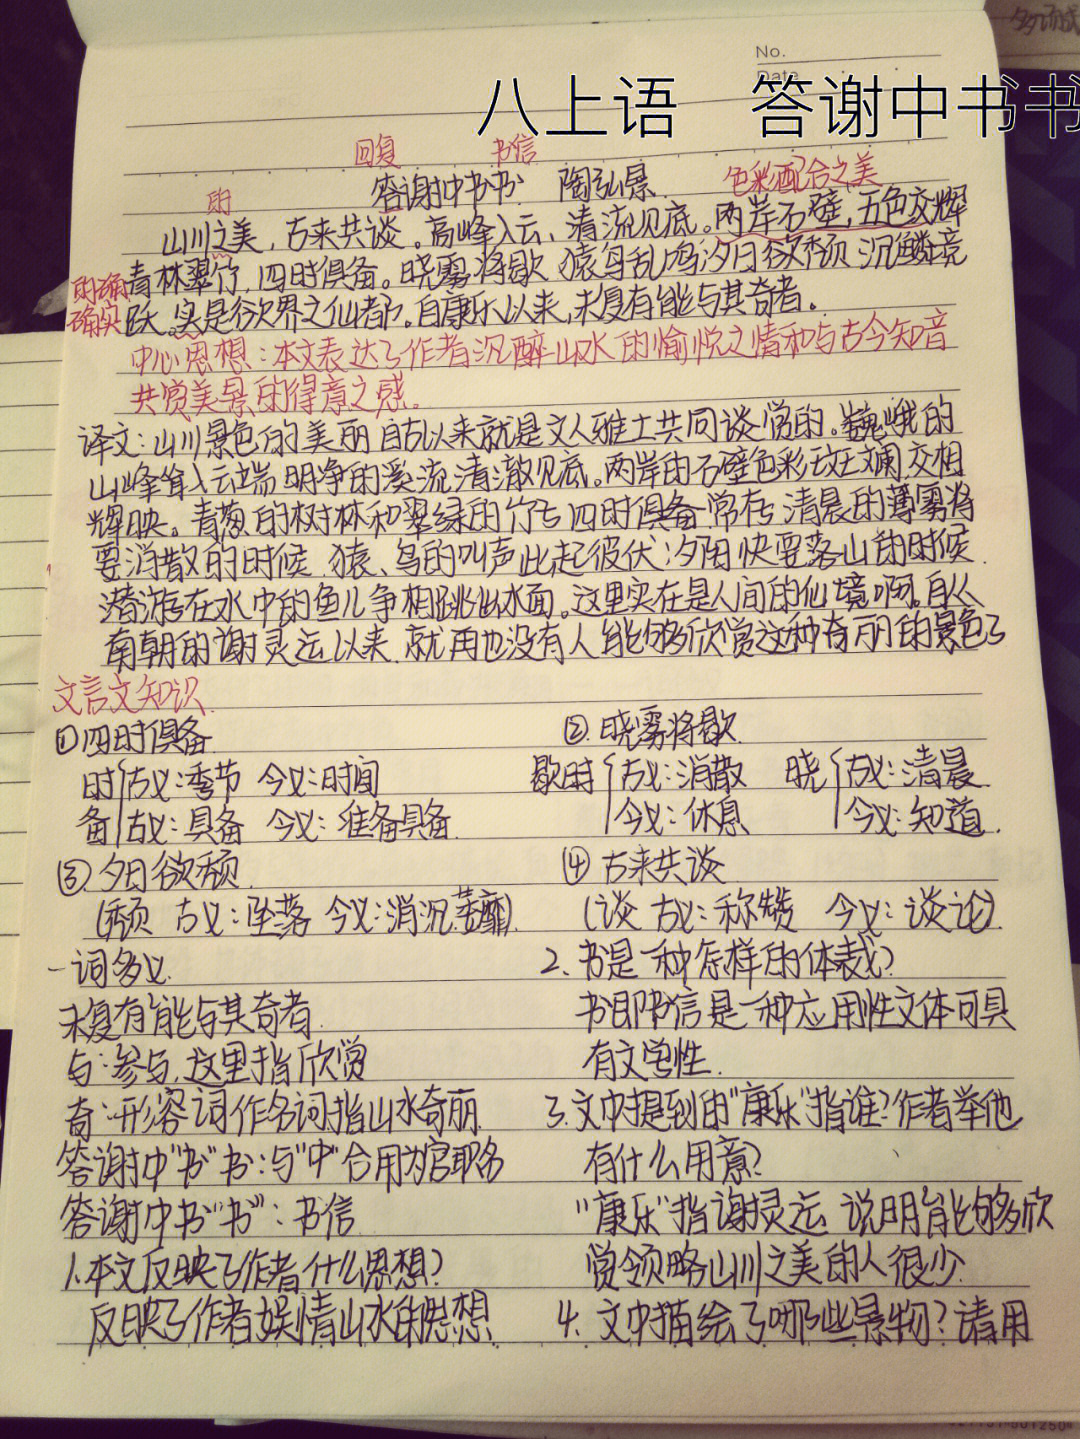 No.
Date
八上语 答谢中书书
回复 书信
答谢中书书 陶弘景 色彩配合之美
的
山川之美，古来共谈。高峰入云，清流见底。两岸石壁，五色交辉
青林翠竹，四时俱备。晓雾将歇 猿鸟乱鸣夕日欲颓 沉鳞竞
的确
确实 跃。实是欲界之仙都。自康乐以来，未复有能与其奇者。
中心思想：本文表达了作者沉醉山水的愉悦之情和与古今知音
共赏美景的得意之感。
译文：山川景色的美丽 自古以来就是文人雅士共同谈赏的。巍峨的
山峰耸入云端 明净的溪流清澈见底。两岸的石壁色彩斑斓 交相
辉映。青葱的树林和翠绿的竹 四时俱备 常存 清晨的薄雾将
要消散的时候 猿、鸟的叫声此起彼伏；夕阳快要落山的时候
潜游在水中的鱼儿争相跳出水面。这里实在是人间的仙境啊。自从
南朝的谢灵运以来 就再也没有人能够欣赏这种奇丽的景色了
文言文知识
①四时俱备 ②晓雾将歇
时 古义：季节 今义：时间 歇时 古义：消散 晓 古义：清晨
备 古义：具备 今义：准备具备 今义：休息 今义：知道
③夕日欲颓 ④古来共谈
(颓 古义：坠落 今义：消沉.萎靡) (谈 古义：称赞 今义：谈论)
一词多义 2.书是一种怎样的体裁？
未复有能与其奇者 书即书信是一种应用性文体可具
与：参与，这里指欣赏 有文学性
奇：形容词作名词指山水奇丽 3.文中提到的"康乐"指谁？作者举他
答谢中"书"书：与"中"合用为官职名 有什么用意？
答谢中书"书"：书信 "康乐"指谢灵运 说明能够欣
1.本文反映了作者什么思想？ 赏领略山川之美的人很少
反映了作者娱情山水的思想 4.文中描绘了哪些景物？请用